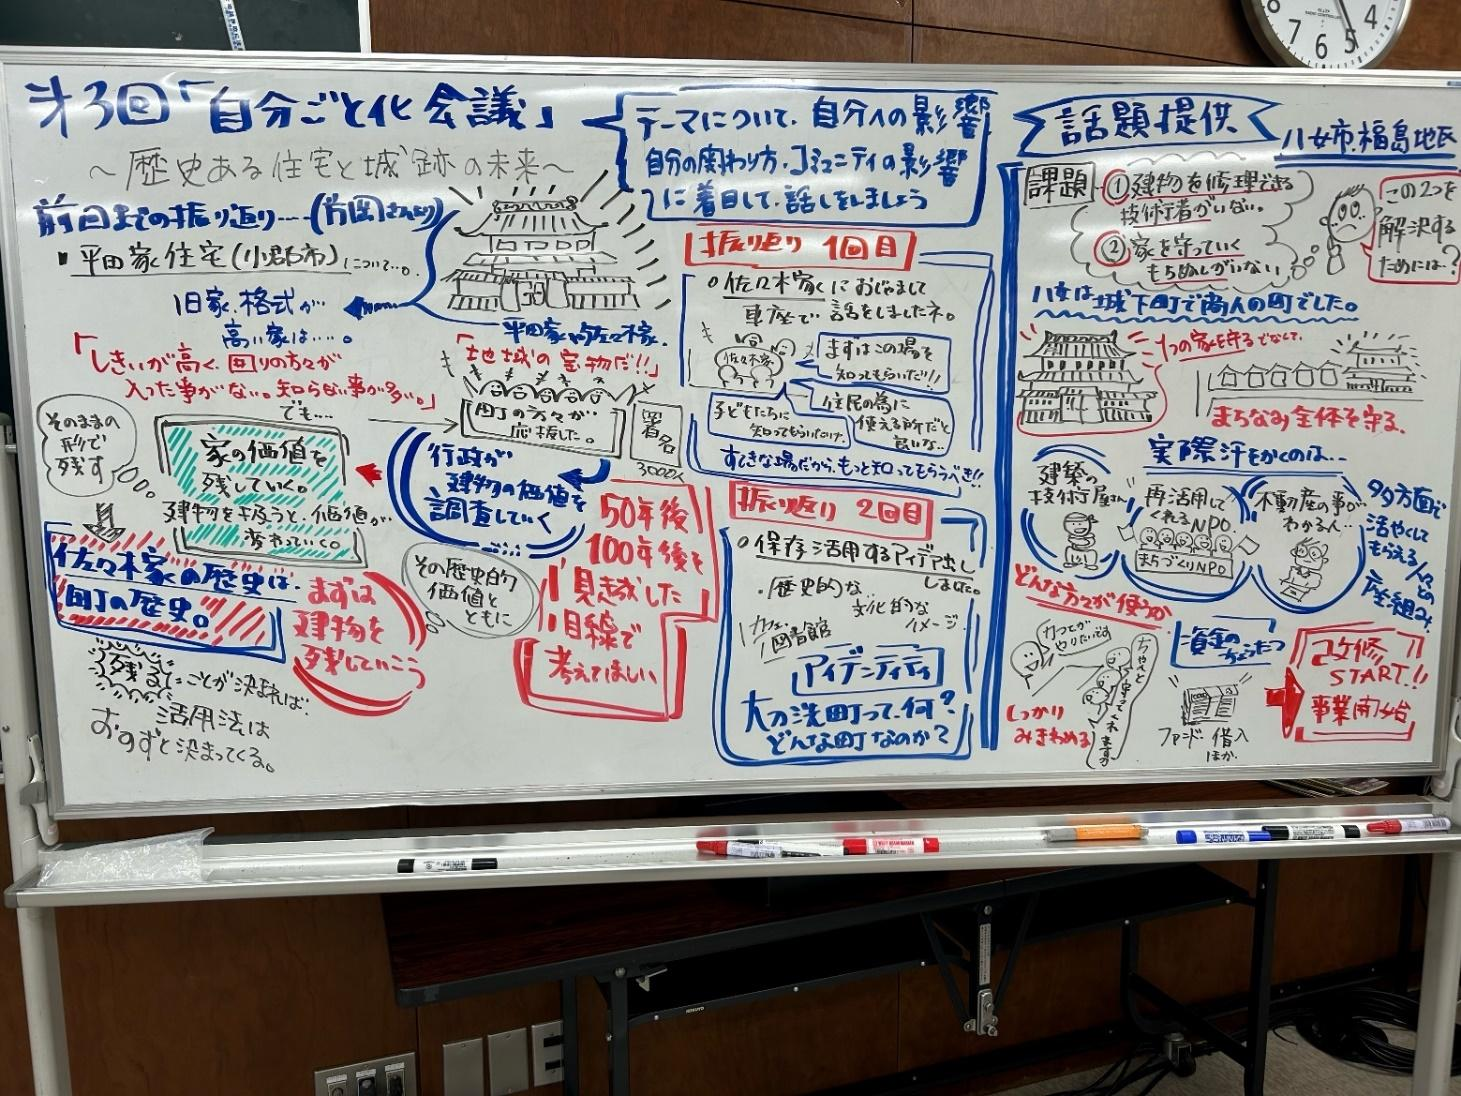 第3回「自分ごと化会議」
～歴史ある住宅と城跡の未来～
テーマについて、自分への影響
自分の関わり方・コミュニティの影響
に着目して、話しをしましょう
前回までの振り返り‥‥
平田家住宅(小郡市)について‥。
旧家、格式が
高い家は‥‥。
「しきいが高く、回りの方々が
入った事がない。知らない事が多い。」
でも‥‥
平田家や佐々木家。
「地域の宝物だ!!」
町の方々が
応援した。
署名
3000人
そのままの
形で
残す
家の価値を
残していく。
建物を扱うと、価値が
変わっていく。
行政が
建物の価値を
調査していく
‥‥
佐々木家の歴史は、
町の歴史。
まずは
建物を
残していこう
その歴史的
価値と
ともに
50年後
100年後を
見越した
目線で
考えてほしい
残すことが決まれば、
活用法は
おのずと決まってくる。
振り返り 1回目
佐々木家におじゃまして
車座で 話をしましたネ。
佐々木家
まずはこの場を
知ってもらいたい!!
子どもたちに
知ってもらいたい。
住民の為に
使える所だと
良いな‥
すてきな場だから、もっと知ってもらうべき!!
振り返り 2回目
保存活用するアイデア出し
しました。
・歴史的な
文化的な
イメージ
カフェ、
図書館
アイデンティティ
大刀洗町って、何?
どんな町なのか?
話題提供
八女市、福島地区
課題
①建物を修理できる
技術者がいない。
②家を守っていく
もちぬしがいない
この2つを
解決する
ためには?
八女は城下町で商人の町でした。
1つの家を守るでなくて、
まちなみ全体を守る。
実際汗をかくのは‥
建築の
技術屋さん
再活用して
くれるNPO
まちづくりNPO
不動産の事が
わかる人‥
多方面で
活やくして
もらえる人々
との
座組み。
どんな方々が使うか
カフェが
やりたいです
ちゃんと
守ってくれますか
しっかり
みきわめる
資金の
ちょうたつ
ファンド・借入
ほか。
改修
START!!
事業開始